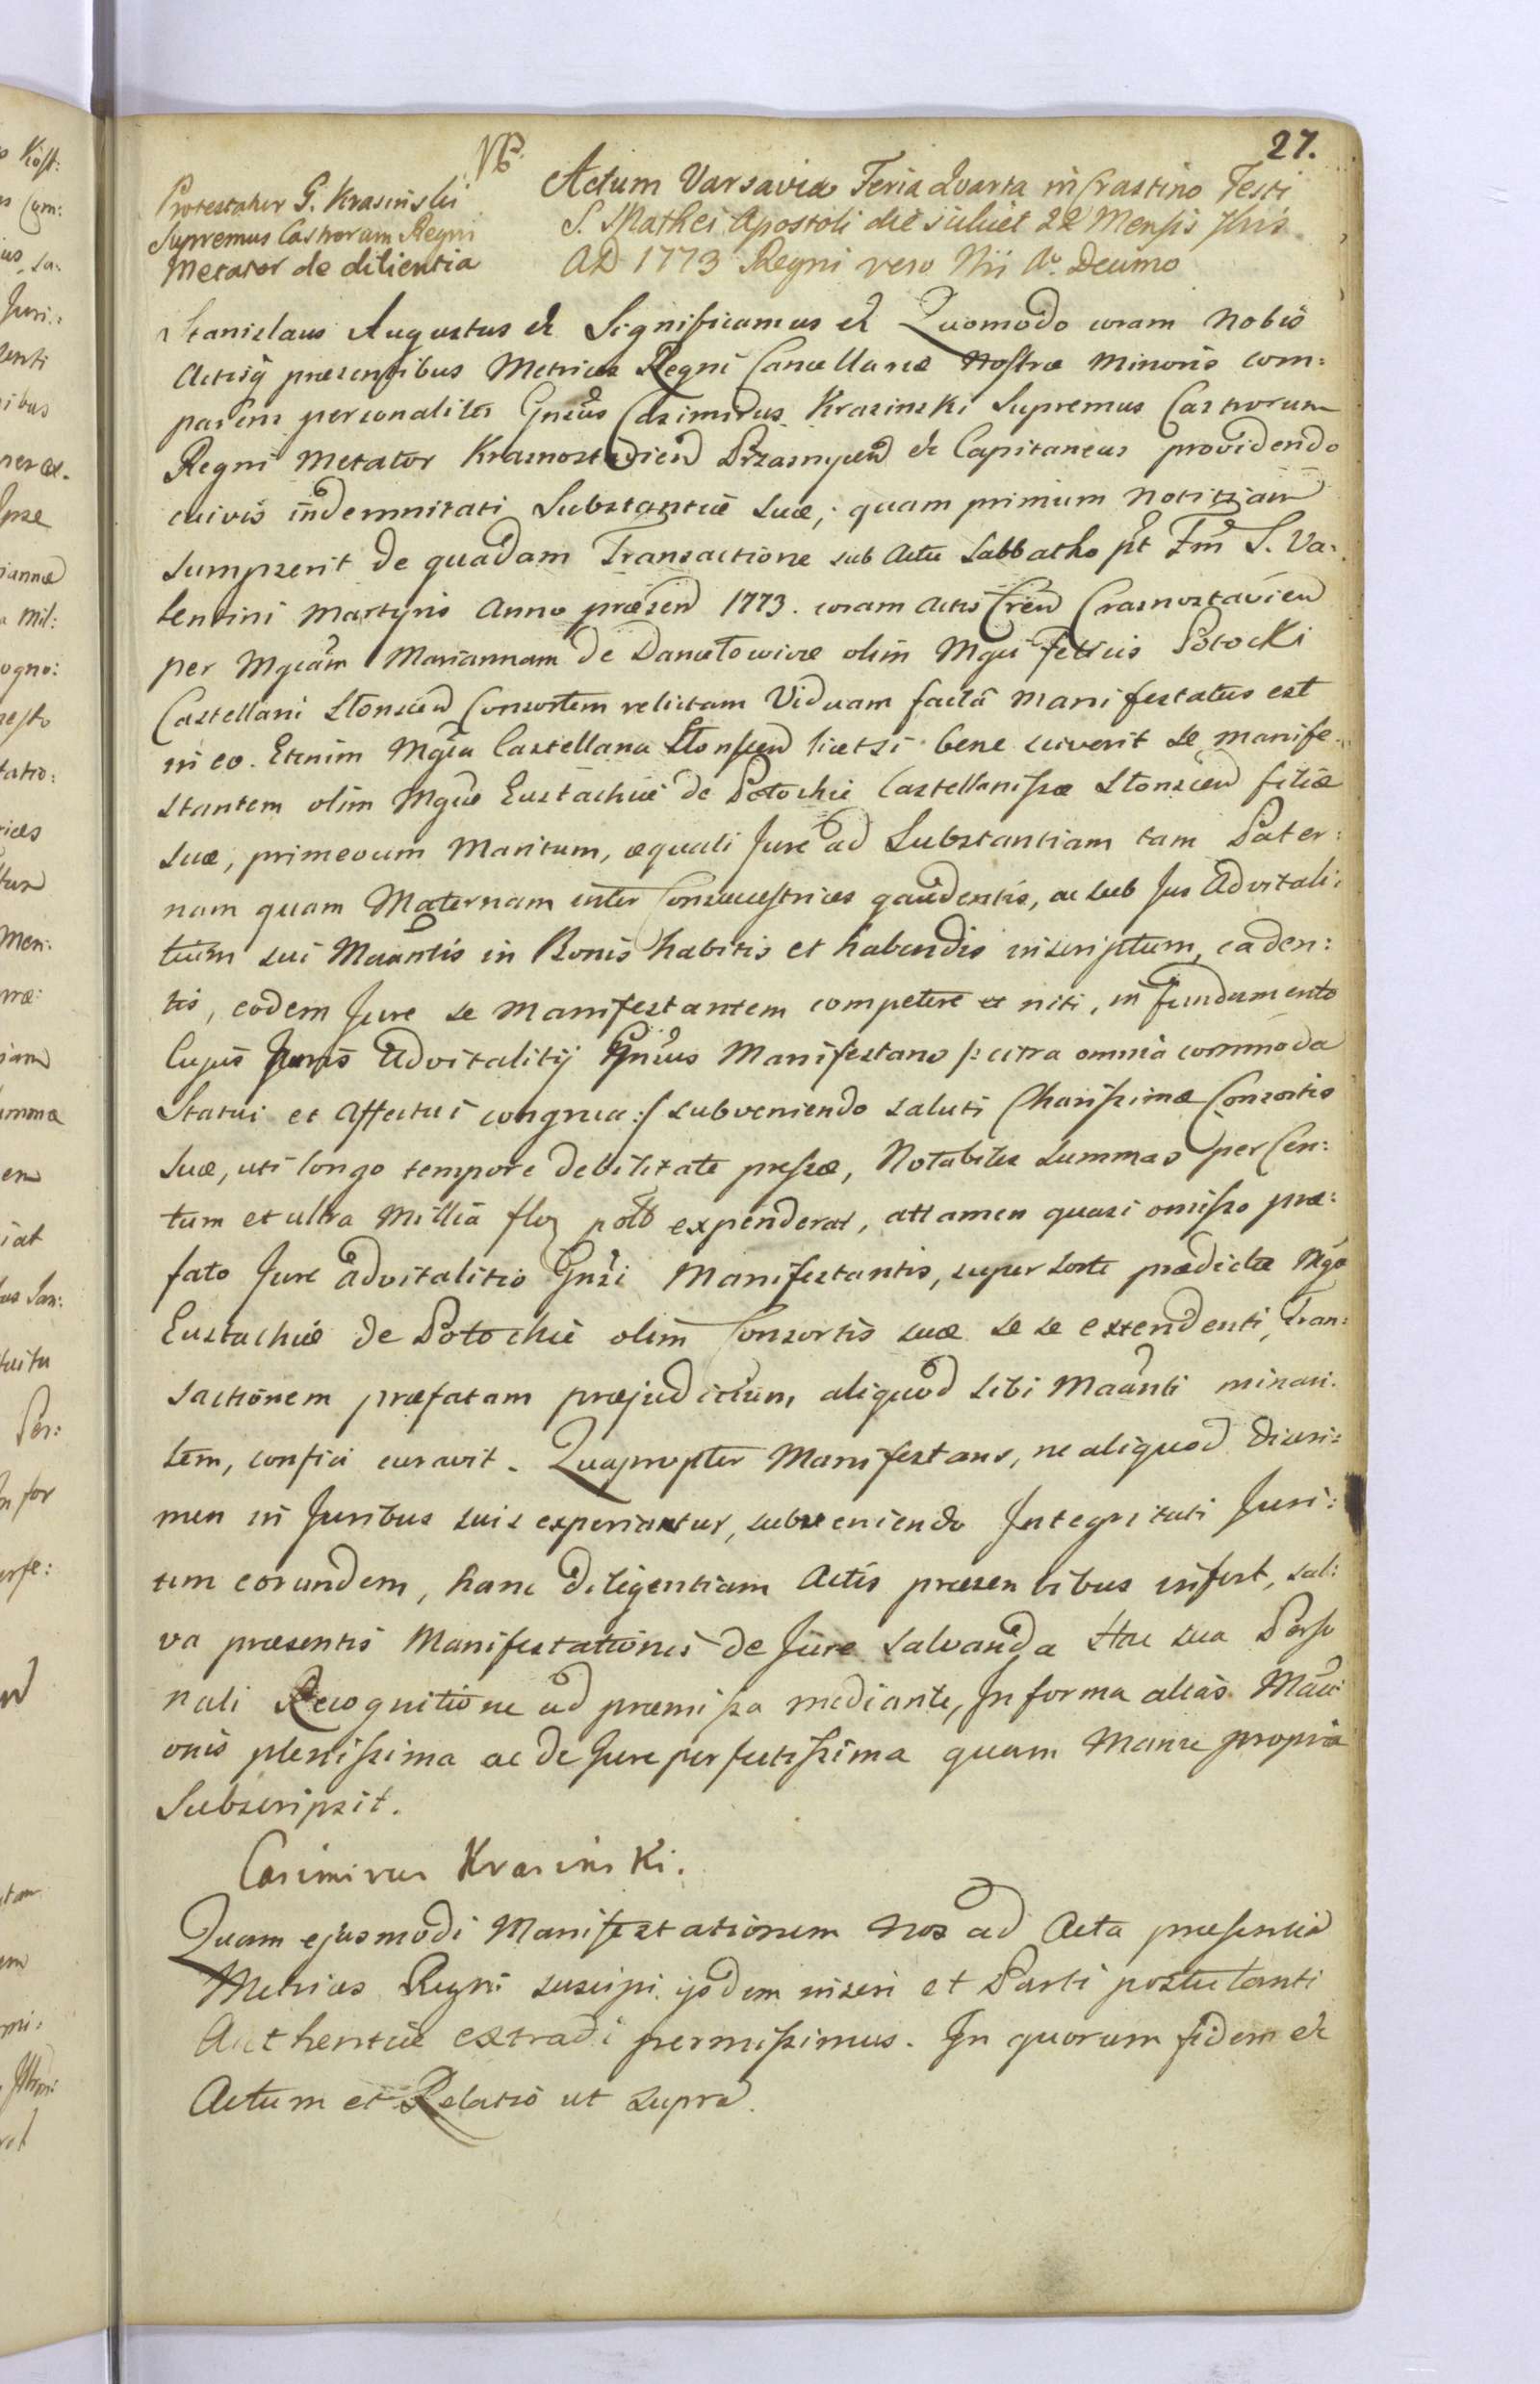 27.
Protestatur G. Krasinski
Supremus Castrorum Regni
Metator de dilientia
NB.
Actum Varsaviæ Feria Quarta in Crastino Festi
S. Mathei Apostoli die scilicet 22 Mensis 7bris
AD 1773 Regni vero Nri Aº Decimo
Stanislaus Augustus & Significamus & Quomodo coram Nobis
Actisq præsentibus Metrices Regni Cancellariæ Nostræ Minoris com:
parens personaliter Gnsus Casimirus Krasinski Supremus Castrorum
Regni Metator Krasnostavien Przasnyen & Capitaneus providendo
cuivis indemnitati Substantiæ suæ, quam primum Notitiam
sumpserit de quadam Transactione sub Actu Sabbatho pt Fm S. Va:
lentini Martyris Anno præsen 1773. coram Actis Cren Crasnostavien
per Mgcam Mariannam de Daniłowicze olim Mgci Felicis Potocki
Castellani Słonscen Consortem relictam Viduam facta manifestatus est
in eo. Etenim Mgca Castellana Słonscen lietsi bene sciverit se manife:
stantem olim Mgcæ Eustachiæ de Potockie Castellanissæ Słonscen filiæ
suæ, primevum Maritum, æquali Jure ad Substantiam tam Pater:
nam quam Maternam inter Consuccestrices gaudentis, ac sub Jus Advitali:
tium sui Maantis in Bonis habitis et habendis inscriptum, caden:
tis, eodem Jure se Manifestantem competere et niti, in fundamento
Cujus Juris Advitalitij Gnsus Manifestans /: citra omnia commoda
Statui et Affectui congrua :/ subveniendo saluti Charissimæ Consortis
Suæ, uti longo tempore debilitate pressæ, Notabiles summas per Cen:
tum et ultra Millia flor polo expenderat, attamen quasi omisso præ:
fato Jure advitalitio Gnsi Manifestantis, super sorte prædictæ Mgcæ
Eustachiæ de Potockie olim Consortis suæ se se extendenti, Tran:
sactionem præfatam præjudicium aliquod sibi Maanti minari:
tem, confici curavit. Quapropter Manifestans, ne aliquod discri:
men in Juribus suis experiantur, subveniendo Integritati Juri:
um eorundem, hanc diligentiam Actis præsentibus infert, sal:
va præsentis Manifestationis de Jure salvanda Hac sua Perso
nali Recognitione ad præmissa mediante, In forma alias Maai
onis plenissima ac de Jure perfectissima quam Manu propria
Subscripsit.
Casimirus Krasinski.
Quam ejusmodi Manifestationem Nos ad Acta præsentia
Metrices Regni suscipi ijsdem inseri et Parti postulanti
Authentice extradi permissimus. In quorum fidem &
Actum et Relatio ut supra.